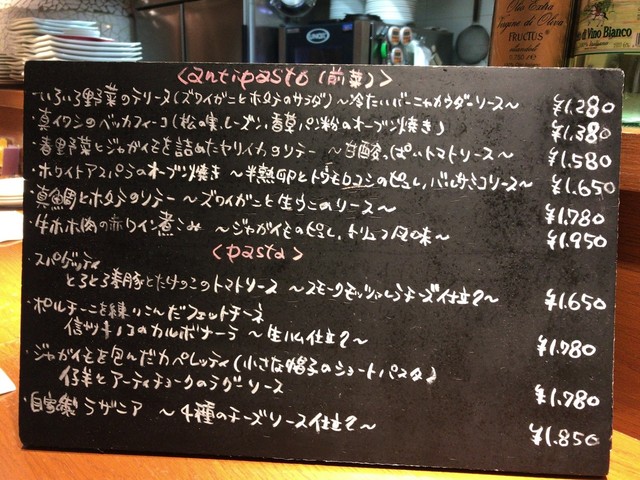 Olio Extra
Vergine di Oliva
FRUCTUS
di Vino Bianco
<antipasto (前菜)>
・いろいろ野菜のテリーヌ(ズワイガニとホタテのサラダ) ～冷たいバーニャカウダーソース～ ¥1.280
・真イワシのベッカフィーコ(松の実、レーズン、香草パン粉のオーブン焼き) ¥1.380
・春野菜とジャガイモを詰めたヤリイカのソテー ～甘酸っぱいトマトソース～ ¥1.580
・ホワイトアスパラのオーブン焼き ～半熟卵とトウモロコシのピュレ、バルサミコソース～ ¥1.650
・真鯛とホタテのソテー ～ズワイガニと生ウニのソース～ ¥1.780
・牛ホホ肉の赤ワイン煮こみ ～ジャガイモのピュレ、トリュフ風味～ ¥1.950
<pasta>
・スパゲッティ
とろとろ豚とたけのこのトマトソース ～スモークモッツァレラチーズ仕立て～ ¥1.650
・ポルチーニを練りこんだフェットチーネ
信州キノコのカルボナーラ ～生ハム仕立て～ ¥1.780
・ジャガイモを包んだカペレッティ(小さな帽子のショートパスタ)
仔羊とアーティチョークのラグーソース ¥1.780
・自家製 ラザニア ～4種のチーズソース仕立て～ ¥1.850